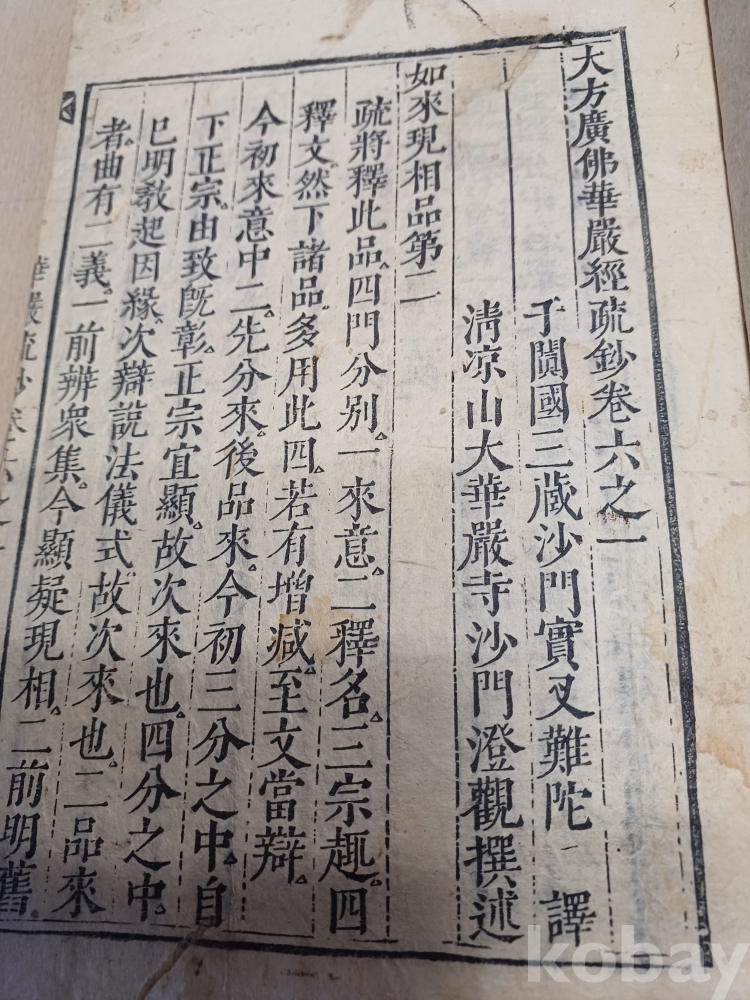 大方廣佛華嚴經疏鈔卷六之一
于闐國三藏沙門實叉難陀 譯
清凉山大華嚴寺沙門澄觀撰述
如來現相品第二
疏將釋此品。四門分别。一來意。二釋名。三宗趣。四
釋文。然下諸品多用此四。若有增减。至文當辯。
今初來意中二。先分來。後品來。今初三分之中。自
下正宗。由致旣彰。正宗宜顯。故次來也。四分之中。
已明教起因緣。次辯說法儀式。故次來也。二品來
者。曲有二義。一前辨衆集。今顯疑現相。二前明舊
華嚴疏鈔
kobay